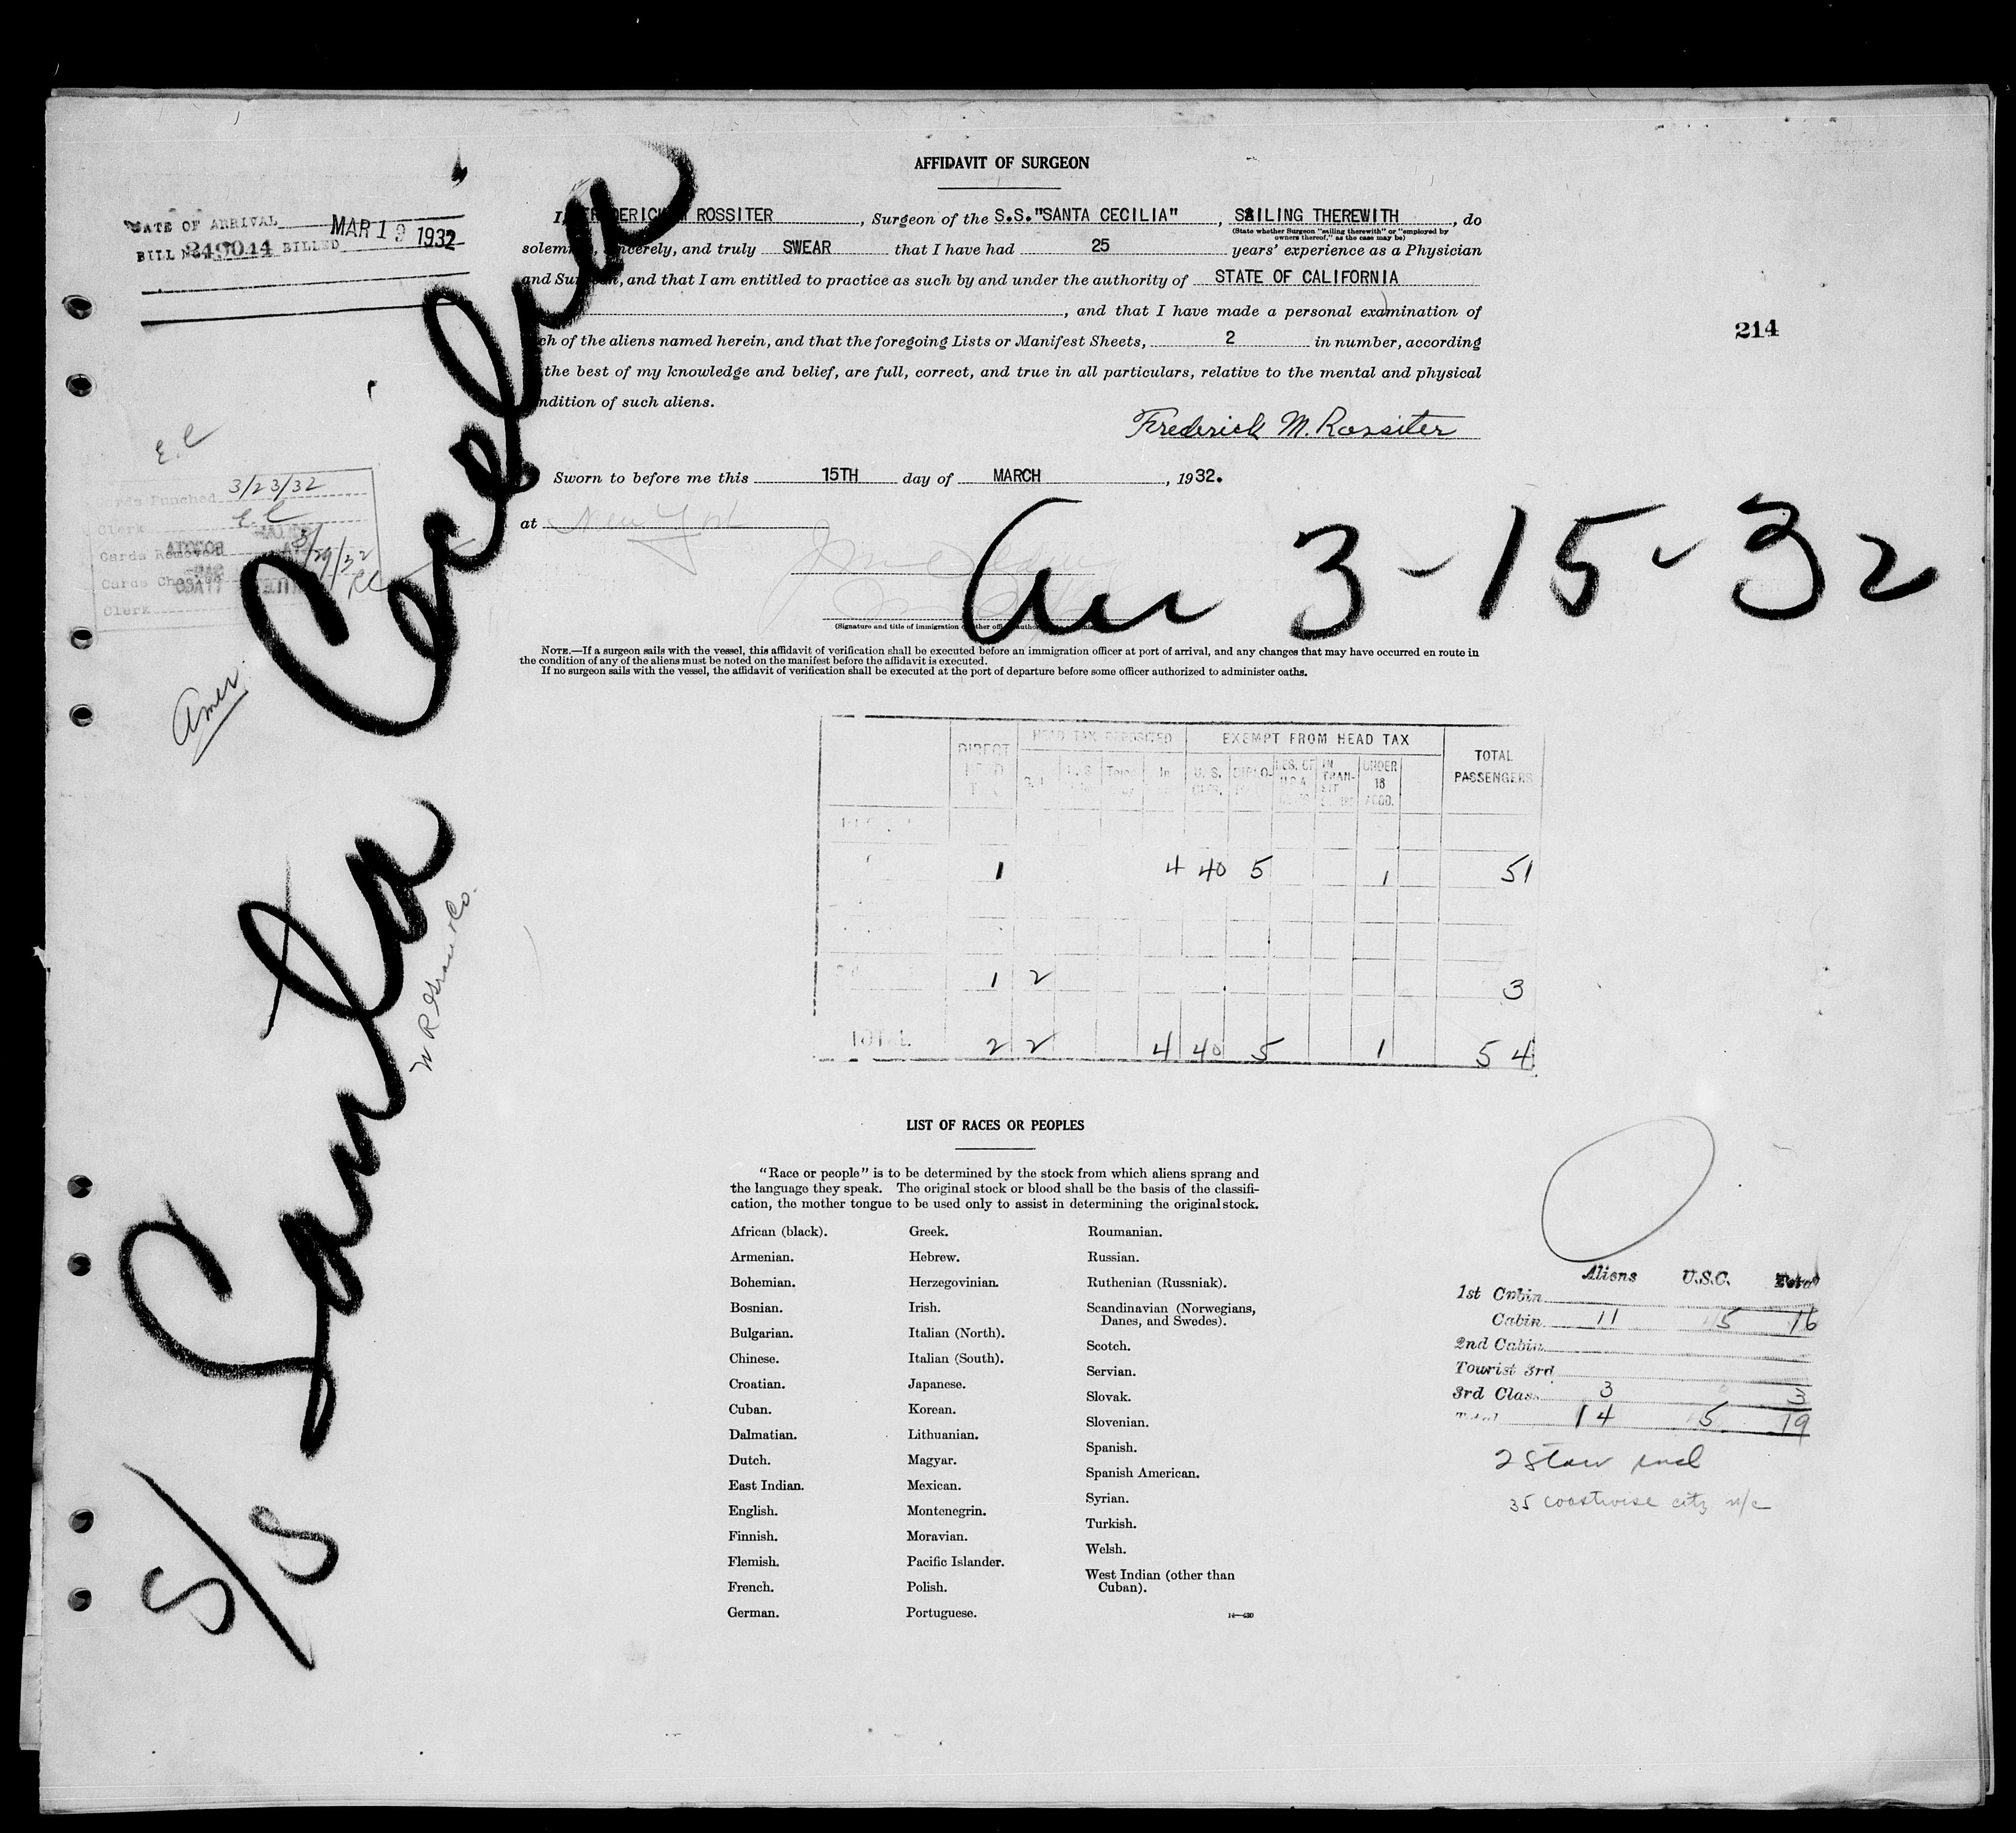 AFFIDAVIT OF SURGEON
I, FREDERICK M ROSSITER, Surgeon of the S.S."SANTA CECILIA", SAILING THEREWITH, do
(State whether Surgeon "sailing therewith" or "employed by
owners thereof," as the case may be)
solemnly, sincerely, and truly SWEAR that I have had 25 years' experience as a Physician
and Surgeon, and that I am entitled to practice as such by and under the authority of STATE OF CALIFORNIA
, and that I have made a personal examination of
each of the aliens named herein, and that the foregoing Lists or Manifest Sheets, 2 in number, according
the best of my knowledge and belief, are full, correct, and true in all particulars, relative to the mental and physical
condition of such aliens.
Frederick M. Rossiter
Sworn to before me this 15TH day of MARCH, 1932.
at New York
(Signature and title of immigration
DATE OF ARRIVAL MAR 19 1932
BILL No 249044 BILLED
214
E.C
Cards Punched 3/23/32
Clerk EC
Cards Removed 3/29/32
Cards Checked
Clerk
Amer.
S/S Santa Cecilia
W R Grace & Co.
Arr 3-15-32
NOTE.—If a surgeon sails with the vessel, this affidavit of verification shall be executed before an immigration officer at port of arrival, and any changes that may have occurred en route in
the condition of any of the aliens must be noted on the manifest before the affidavit is executed.
If no surgeon sails with the vessel, the affidavit of verification shall be executed at the port of departure before some officer authorized to administer oaths.
DIRECT HEAD TAX HEAD TAX DEPOSITED EXEMPT FROM HEAD TAX TOTAL PASSENGERS
In U. S. DIPLO- RES. OF IN TRAN- UNDER 16 ACCD.
1 4 40 5 1 51
1 2 3
TOTAL 2 2 4 40 5 1 54
LIST OF RACES OR PEOPLES
"Race or people" is to be determined by the stock from which aliens sprang and
the language they speak. The original stock or blood shall be the basis of the classifi-
cation, the mother tongue to be used only to assist in determining the original stock.
African (black).
Armenian.
Bohemian.
Bosnian.
Bulgarian.
Chinese.
Croatian.
Cuban.
Dalmatian.
Dutch.
East Indian.
English.
Finnish.
Flemish.
French.
German.
Greek.
Hebrew.
Herzegovinian.
Irish.
Italian (North).
Italian (South).
Japanese.
Korean.
Lithuanian.
Magyar.
Mexican.
Montenegrin.
Moravian.
Pacific Islander.
Polish.
Portuguese.
Roumanian.
Russian.
Ruthenian (Russniak).
Scandinavian (Norwegians,
Danes, and Swedes).
Scotch.
Servian.
Slovak.
Slovenian.
Spanish.
Spanish American.
Syrian.
Turkish.
Welsh.
West Indian (other than
Cuban).
14—430
Aliens U.S.C. Total
1st Cabin
Cabin 11 5 16
2nd Cabin
Tourist 3rd
3rd Class 3 3
Total 14 5 19
2 Stow incl
35 coastwise citz n/c